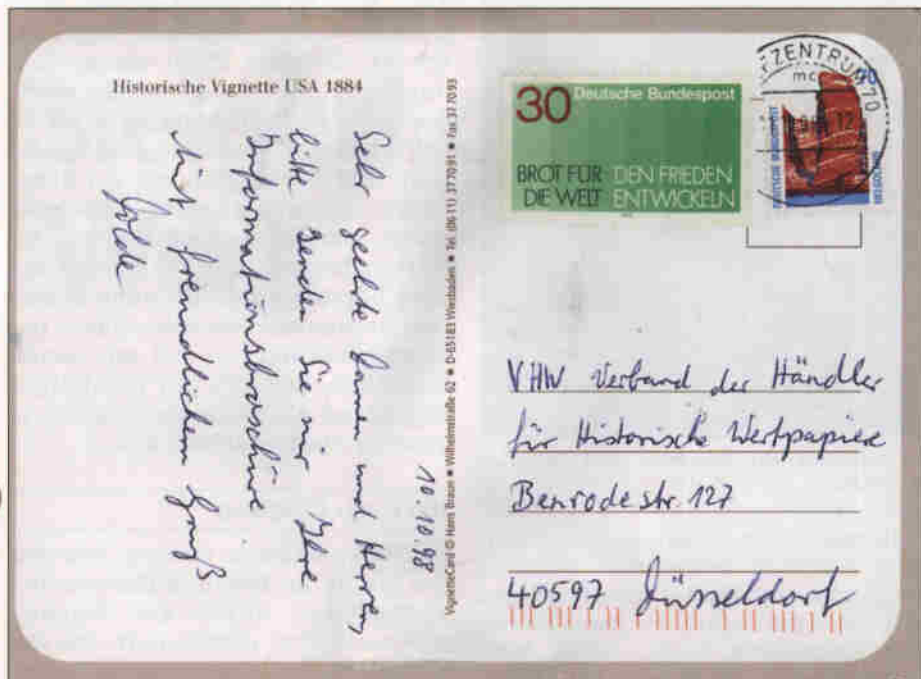 Historische Vignette USA 1884
10.10.98
Sehr geehrte Damen und Herren,
bitte senden Sie mir Ihre
Informationsbroschüre
Mit freundlichem Gruß
VignetteCard © Hans Braun • Wilhelmstraße 62 • D-65183 Wiesbaden • Tel. (06 11) 37 70 91 • Fax 37 70 93
30 Deutsche Bundespost
BROT FÜR DEN FRIEDEN
DIE WELT ENTWICKELN
DEUTSCHE BUNDESPOST
HELGOLAND
VHW Verband der Händler
für Historische Wertpapiere
Benrodestr. 127
40597 Düsseldorf